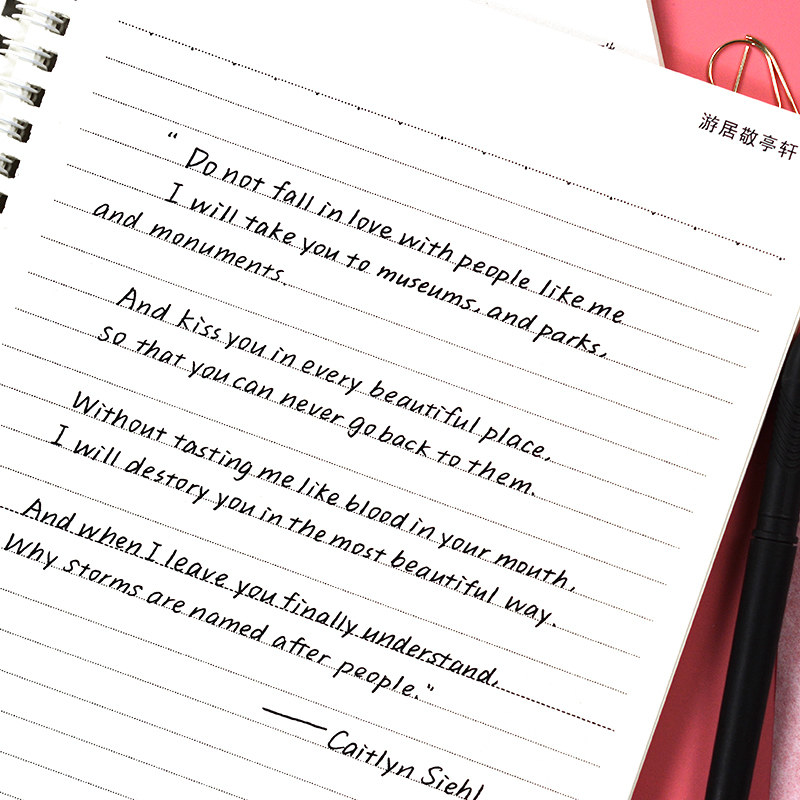 游居敬亭轩
“Do not fall in love with people like me
I will take you to museums, and parks,
and monuments.
And kiss you in every beautiful place,
so that you can never go back to them.
Without tasting me like blood in your mouth,
I will destory you in the most beautiful way.
And when I leave you finally understand,
Why storms are named after people.”
—— Caitlyn Siehl